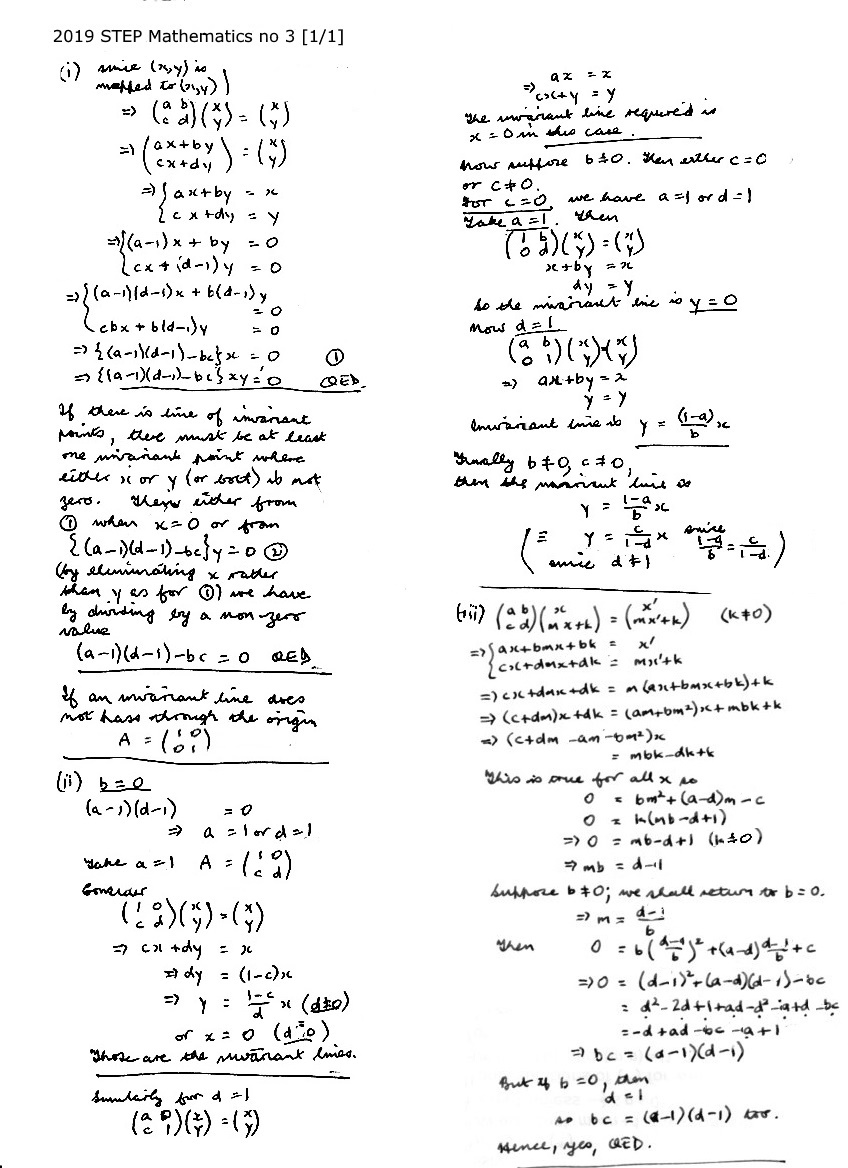 2019 STEP Mathematics no 3 [1/1]
(i) since (x,y) is
mapped to (x,y) )
⇒ (a b / c d)(x / y) = (x / y)
⇒ (ax+by / cx+dy) = (x / y)
⇒ { ax+by = x
{ cx+dy = y
⇒ { (a-1)x + by = 0
{ cx + (d-1)y = 0
⇒ { (a-1)(d-1)x + b(d-1)y
= 0
{ cbx + b(d-1)y = 0
⇒ {(a-1)(d-1)-bc}x = 0 ①
⇒ {(a-1)(d-1)-bc}xy = 0 QED.
If there is line of invariant
points, there must be at least
one invariant point where
either x or y (or both) is not
zero. Then either from
① when x=0 or from
{(a-1)(d-1)-bc}y=0 ②
(by eliminating x rather
than y as for ①) we have
by dividing by a non-zero
value
(a-1)(d-1)-bc = 0 QED.
If an invariant line does
not pass through the origin
A = (1 0 / 0 1)
(ii) b=0
(a-1)(d-1) = 0
⇒ a=1 or d=1
Take a=1 A = (1 0 / c d)
Consider
(1 0 / c d)(x / y) = (x / y)
⇒ cx+dy = x
⇒ dy = (1-c)x
⇒ y = (1-c)/d x (d≠0)
or x=0 (d=0)
Those are the invariant lines.
Similarly for d=1
(a 0 / c 1)(x / y) = (x / y)
⇒ ax = x
cx+y = y
The invariant line required is
x=0 in this case.
Now suppose b≠0. Then either c=0
or c≠0.
For c=0, we have a=1 or d=1
Take a=1. Then
(1 b / 0 d)(x / y) = (x / y)
x+by = x
dy = y
So the invariant line is y=0
Now d=1
(a b / 0 1)(x / y) = (x / y)
⇒ ax+by = x
y = y
Invariant line is y = (1-a)/b x
Finally b≠0, c≠0,
then the invariant line is
y = (1-a)/b x
( ≡ y = c/(1-d) x since (1-a)/b = c/(1-d) )
since d≠1
(iii) (a b / c d)(x / mx+k) = (x' / mx'+k) (k≠0)
⇒ { ax+bmx+bk = x'
{ cx+dmx+dk = mx'+k
⇒ cx+dmx+dk = m(ax+bmx+bk)+k
⇒ (c+dm)x+dk = (am+bm²)x+mbk+k
⇒ (c+dm-am-bm²)x
= mbk-dk+k
This is true for all x so
0 = bm²+(a-d)m-c
0 = k(mb-d+1)
⇒ 0 = mb-d+1 (k≠0)
⇒ mb = d-1
Suppose b≠0; we shall return to b=0.
⇒ m = (d-1)/b
Then 0 = b((d-1)/b)²+(a-d)(d-1)/b+c
⇒ 0 = (d-1)²+(a-d)(d-1)-bc
= d²-2d+1+ad-d²-a+d-bc
= -d+ad-bc-a+1
⇒ bc = (a-1)(d-1)
But if b=0, then
d=1
so bc = (a-1)(d-1) too.
Hence, yes, QED.